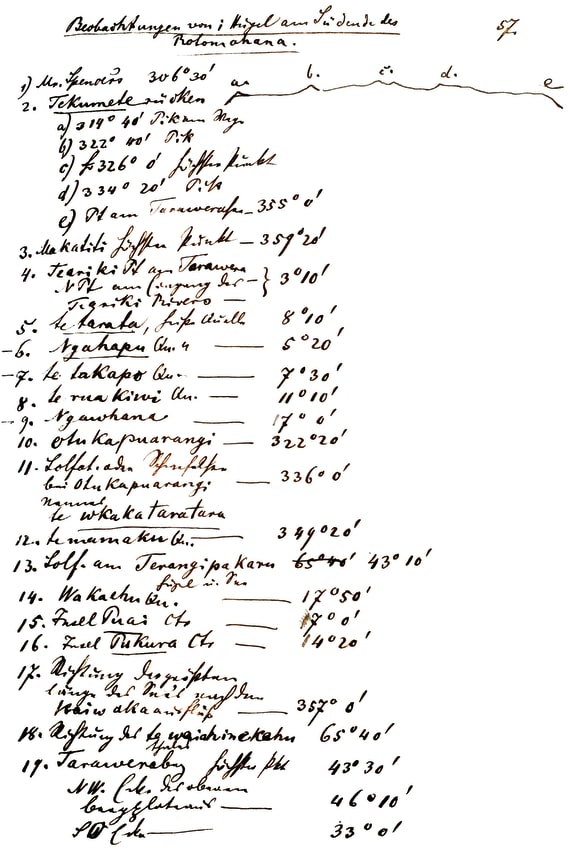 57.
Beobachtungen von i Hügel am Südende des
Rotomahana.
1) Mr. Spencers 306° 30'
a. b. c. d. e
2. Tekumete rücken
a) 314° 40' Pik am Weg
b) 322° 40' Pik
c) 326° 0' höchster Punkt
d) 334° 20' Pik
e) Pt am Tarawera 355° 0'
3. Makatiti höchster Punkt – 359° 20'
4. Teariki Pt am Tarawera
N Pt am Eingang des – } 3° 10'
Teariki Rivers —
5. te tarata, heiße Quelle 8° 10'
– 6. Ngahapu Qu. — 5° 20'
– 7. te takapo Qu. — 7° 30'
8. te rua kiwi Qu. — 11° 10'
– 9. Ngawhana — 17° 0'
10. otukapuarangi — 322° 20'
11. Solfat. oder
bei Otukapuarangi 336° 0'
Namens
te wkakataratara
12. temamaku Qu. — 349° 20'
13. Solf. am Terangipakaru 65° 40' 43° 10'
Hügel u. See
14. Wakaehu Qu. — 17° 50'
15. Insel Puai Ctr — 17° 0'
16. Insel Pukura Ctr — 14° 20'
17. Richtung der größten
länge des Sees nach dem
Kaiwaka ausfluß — 357° 0'
18. Richtung des te waichinekehu 65° 40'
thales
19. Taraweraberg höchster Pkt 43° 30'
NW. Ecke des oberen
bergplateaus — 46° 10'
SO Ecke — 33° 0'